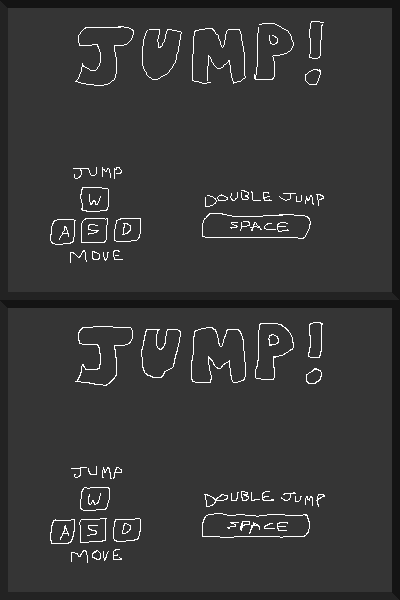 JUMP!
JUMP
W
A S D
MOVE
DOUBLE JUMP
SPACE
JUMP!
JUMP
W
A S D
MOVE
DOUBLE JUMP
SPACE